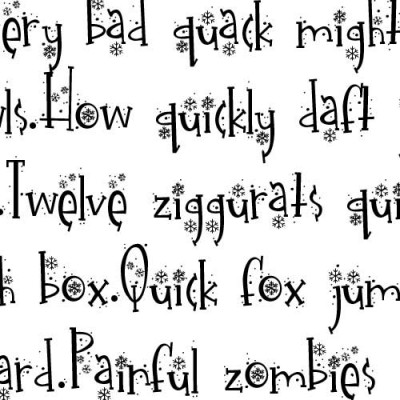 ery bad quack might
wls.How quickly daft
.Twelve ziggurats qui
h box.Quick fox jum
ard.Painful zombies